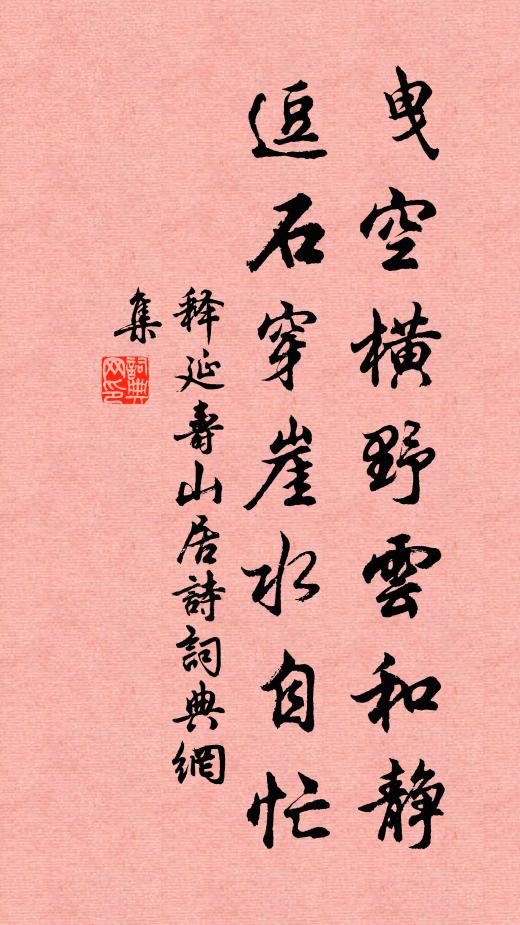 曳空橫野雲和靜
逗石穿崖水自忙
释延壽山居詩詞典網
集
詞典网印